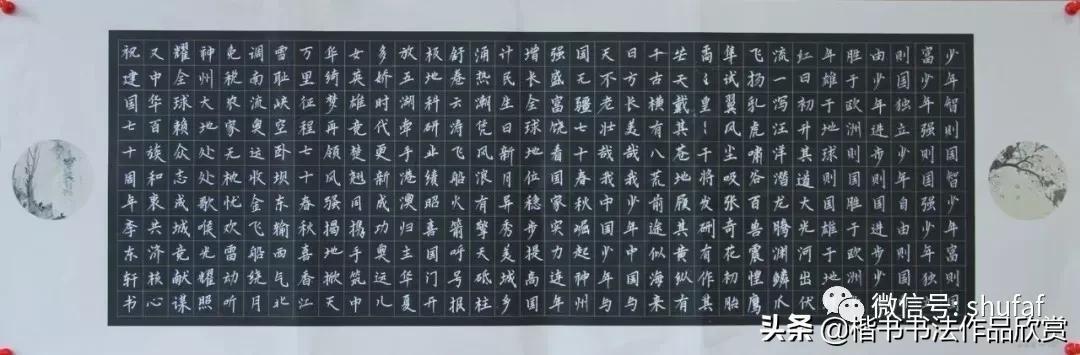 少年智则国智少年富则
富少年强则国强少年独
则国独立少年自由则国
由少年进步则国进步少
胜于欧洲则国胜于欧洲
年雄于地球则国雄于地
红日初升其道大光河出伏
流一泻汪洋潜龙腾渊鳞爪
飞扬乳虎啸谷百兽震惶鹰
隼试翼风尘吸张奇花初胎
矞矞皇皇干将发硎有作其
芒天戴其苍地履其黄纵有
千古横有八荒前途似海来
日方长美哉我少年中国与
天不老壮哉我中国少年与
国无疆七十春秋崛起神州
强盛富饶看国家实力连年
增长全球地位稳步提高国
计民生日新月异秀美城乡
涌热潮凭风浪有擎天砥柱
舒卷云涛飞船火箭呼号报
极地科研业绩昭喜国门开
放五湖牵手港澳归主华夏
多娇时代更新成功奥运儿
女英雄竞楚翘同携手筑中
华绮梦再领风骚揭地掀天
万里征程七十春秋喜香江
雪耻峡空卧坝东输西气北
调南流奥运收金飞船绕月
免税农家无枕忧欢雷动听
神州大地处处歌喉光耀照
耀全球赖众志成城竞献谋
又中华百族和衷共济核心
祝建国七十周年李东轩书
微信号: shufaf
头条@楷书书法作品欣赏